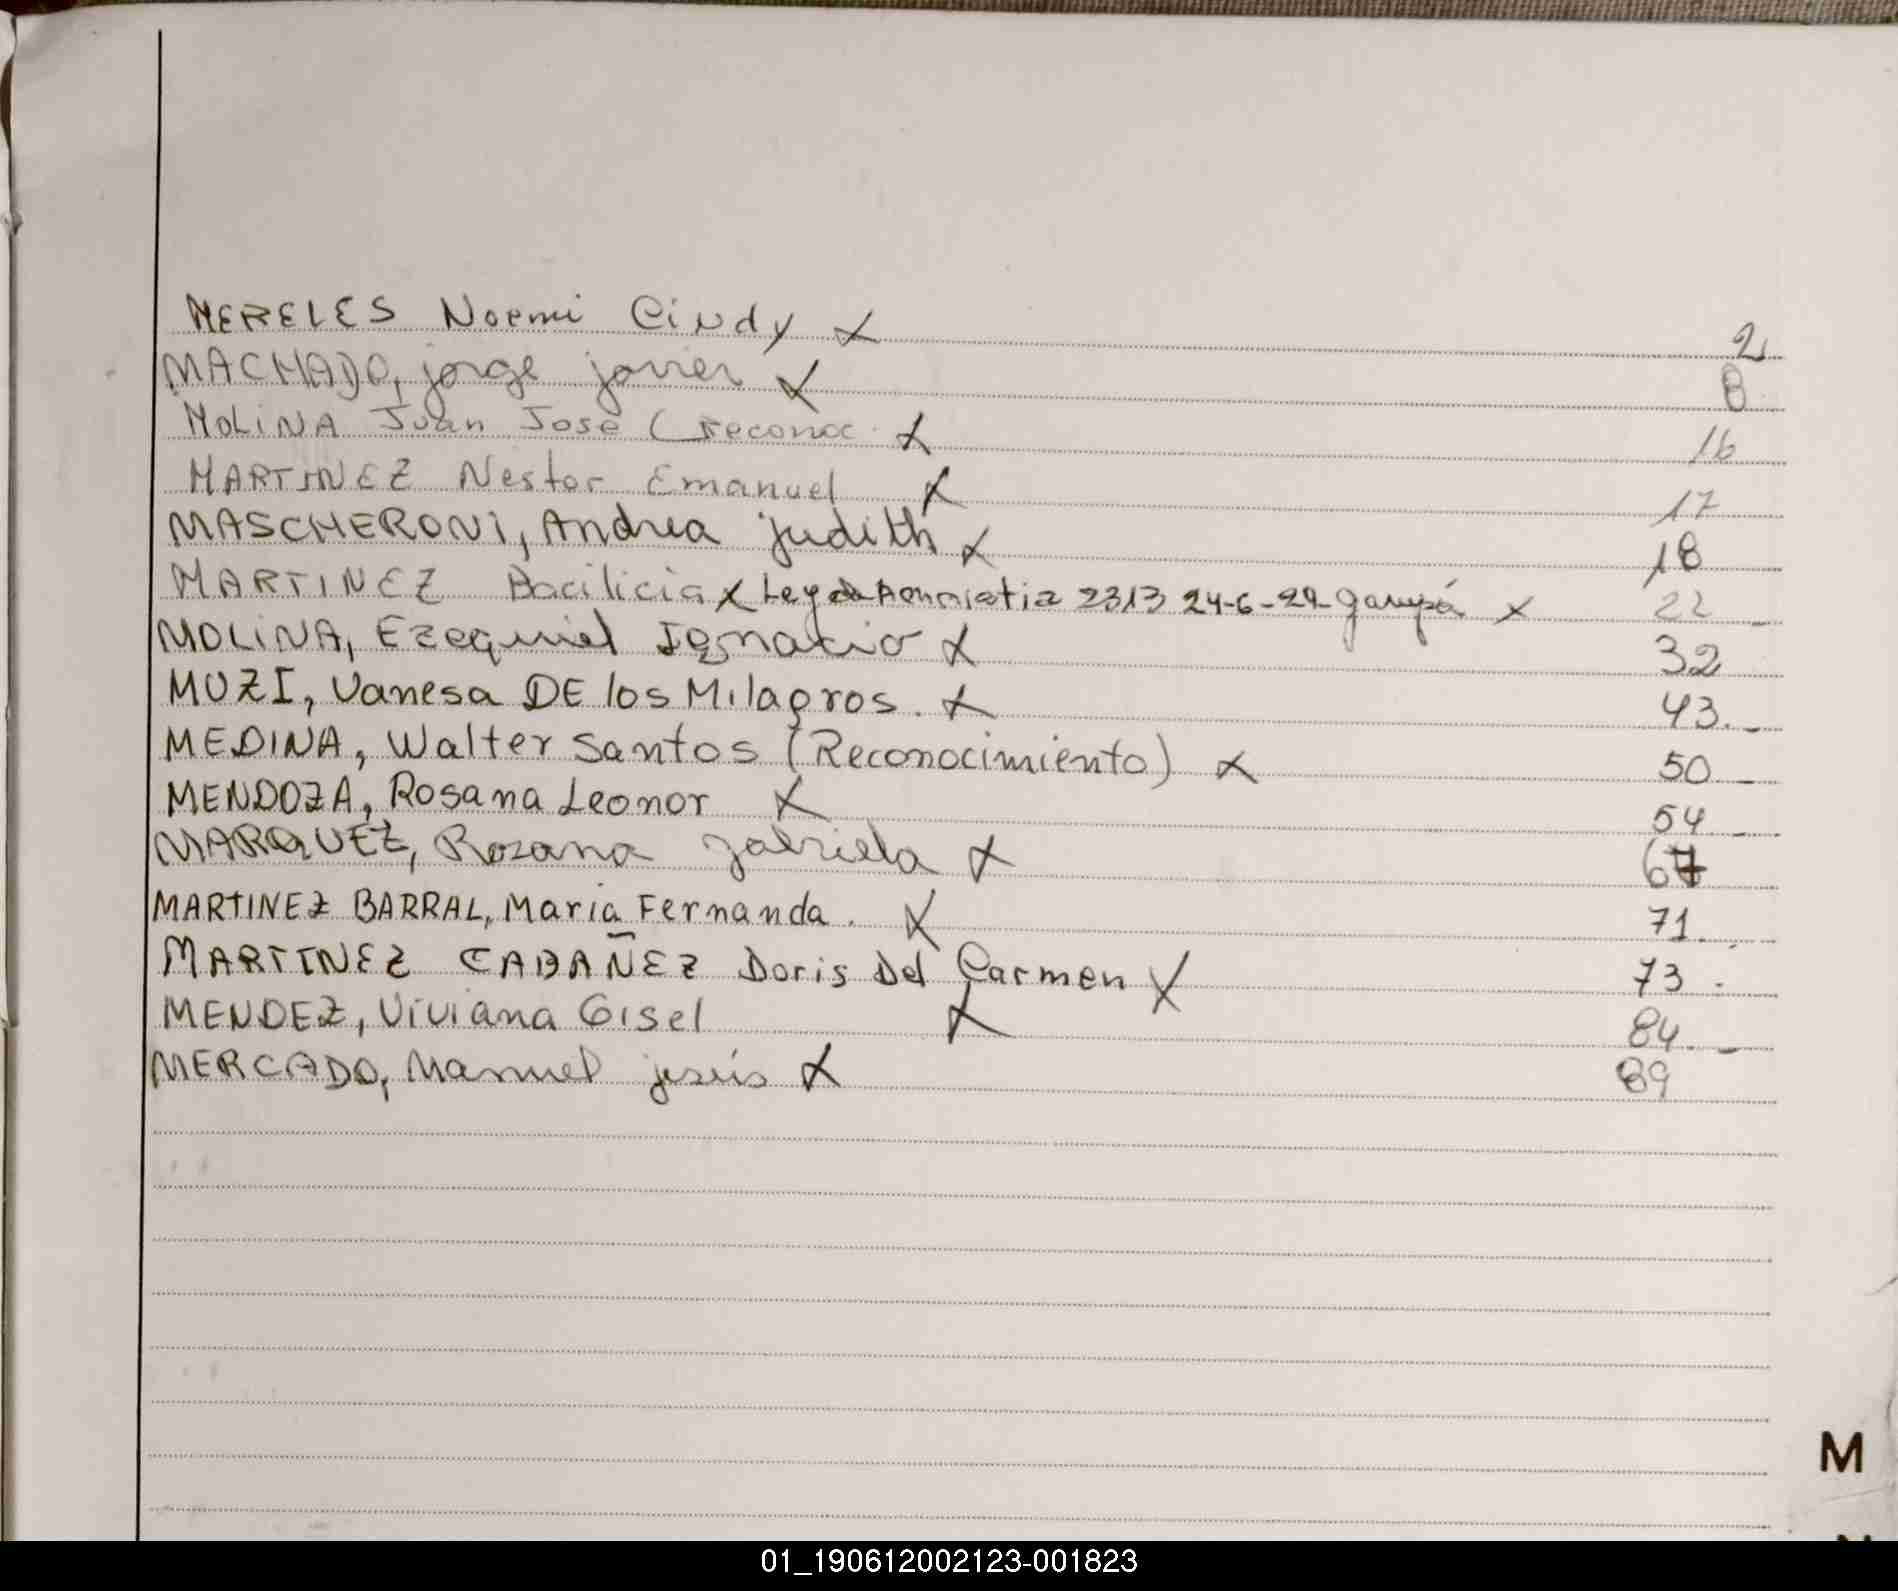 MERELES Noemi Cindy X 2
MACHADO, jorge javier X 8
MOLINA Juan Jose (reconoc. X 16
MARTINEZ Nestor Emanuel X 17
MASCHERONI, Andrea judith X 18
MARTINEZ Bacilicia X Ley de Amnistia 2313 24-6-29 garupá X 22
MOLINA, Ezequiel Ignacio X 32
MUZI, Vanesa DE los Milagros. X 43.
MEDINA, Walter Santos (Reconocimiento) X 50
MENDOZA, Rosana Leonor X 54
MARQUEZ, Rozana gabriela X 67
MARTINEZ BARRAL, Maria Fernanda. X 71.
MARTINEZ CABAÑEZ Doris Del Carmen X 73
MENDEZ, Viviana Gisel X 84.
MERCADO, Manuel jesús X 89
M
01_190612002123-001823